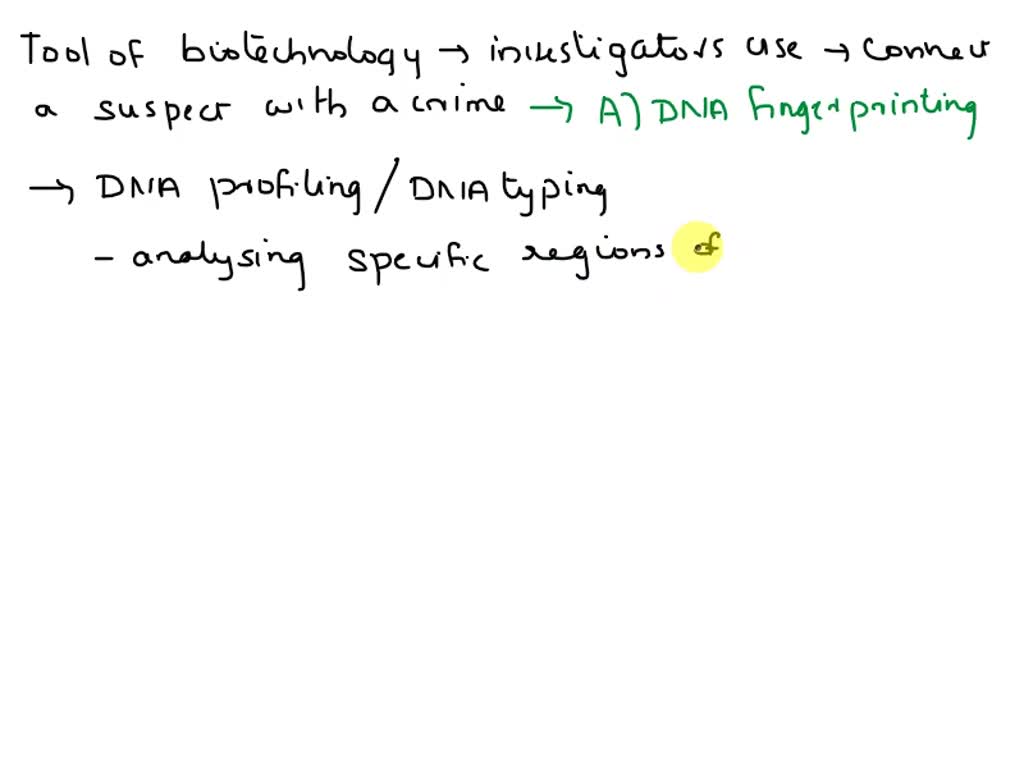 Tool of biotechnology → investigators use → connect
a suspect with a crime → A) DNA fingerprinting
→ DNA profiling / DNA typing
- analysing specific regions of